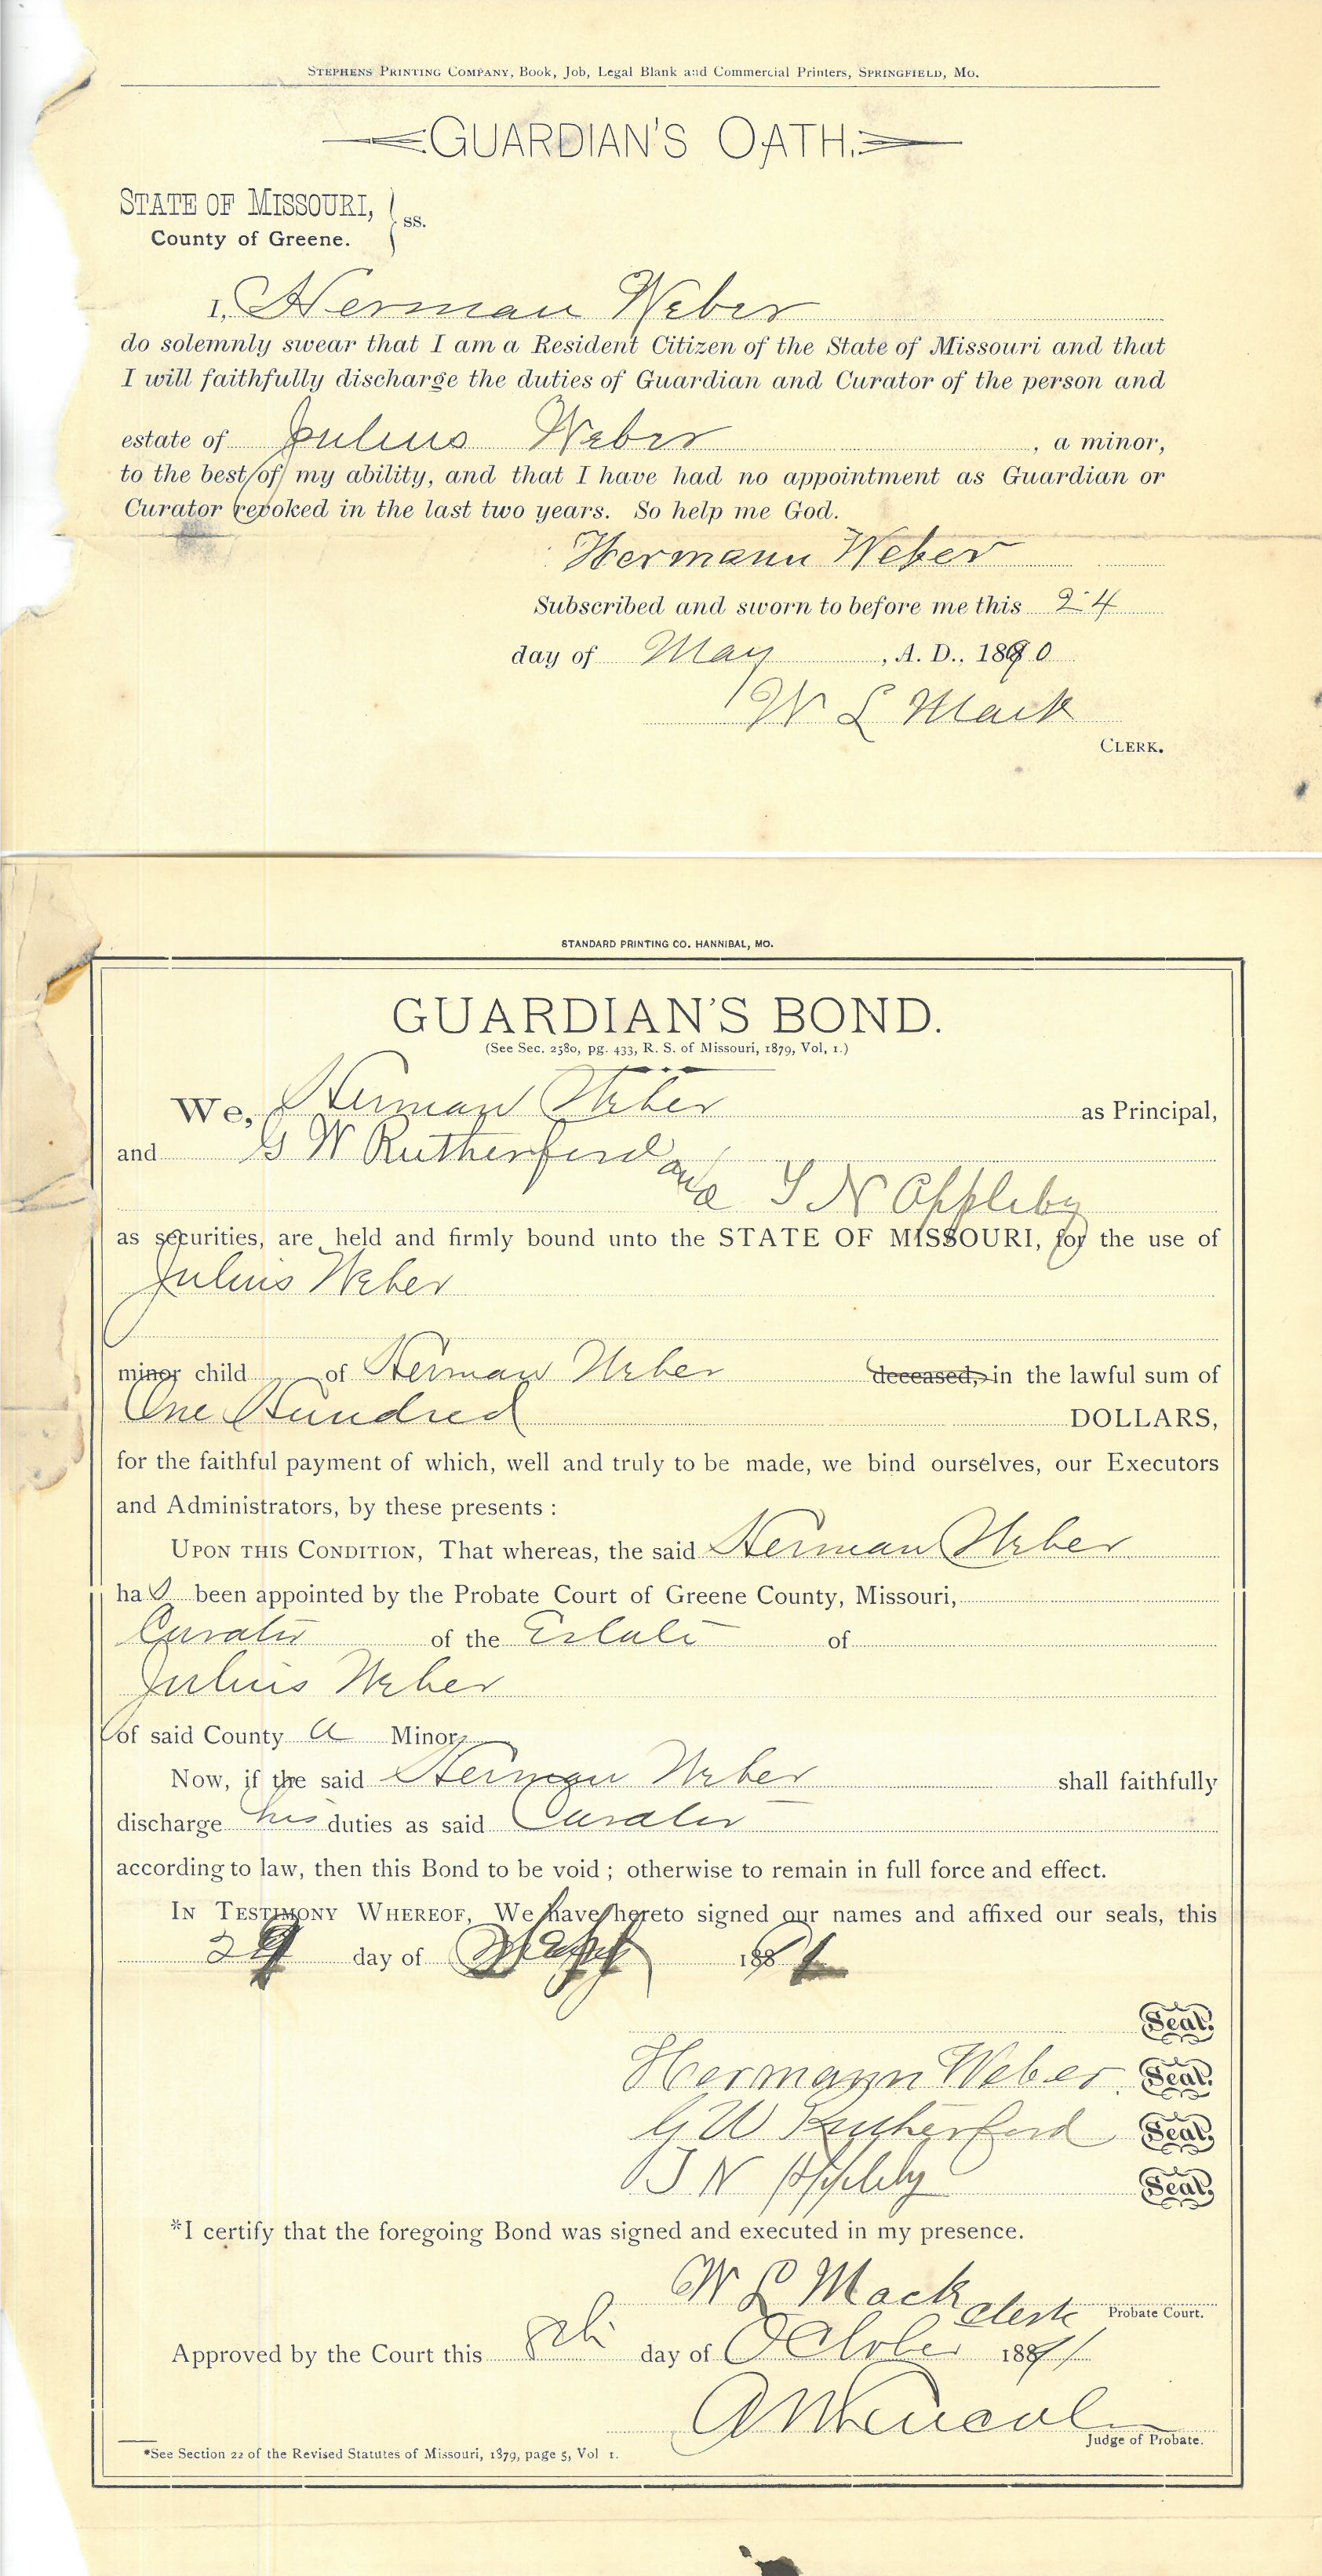 STEPHENS PRINTING COMPANY, Book, Job, Legal Blank and Commercial Printers, SPRINGFIELD, MO.
GUARDIAN'S OATH.
STATE OF MISSOURI, } ss.
County of Greene.
I, Herman Weber
do solemnly swear that I am a Resident Citizen of the State of Missouri and that
I will faithfully discharge the duties of Guardian and Curator of the person and
estate of Julius Weber, a minor,
to the best of my ability, and that I have had no appointment as Guardian or
Curator revoked in the last two years. So help me God.
Hermann Weber
Subscribed and sworn to before me this 24
day of May, A. D., 1890
W L Mack
CLERK.
STANDARD PRINTING CO. HANNIBAL, MO.
GUARDIAN'S BOND.
(See Sec. 2580, pg. 433, R. S. of Missouri, 1879, Vol, 1.)
We, Herman Weber as Principal,
and G W Rutherford and
T N Appleby
as securities, are held and firmly bound unto the STATE OF MISSOURI, for the use of
Julius Weber
minor child of Herman Weber deceased, in the lawful sum of
One Hundred DOLLARS,
for the faithful payment of which, well and truly to be made, we bind ourselves, our Executors
and Administrators, by these presents :
UPON THIS CONDITION, That whereas, the said Herman Weber
has been appointed by the Probate Court of Greene County, Missouri,
Curator of the Estate of
Julius Weber
of said County a Minor
Now, if the said Herman Weber shall faithfully
discharge his duties as said Curator
according to law, then this Bond to be void ; otherwise to remain in full force and effect.
IN TESTIMONY WHEREOF, We have hereto signed our names and affixed our seals, this
29 day of Sept 1891
Seal.
Hermann Weber Seal.
G W Rutherford Seal.
T N Appleby Seal.
*I certify that the foregoing Bond was signed and executed in my presence.
W L Mack Clerk Probate Court.
Approved by the Court this 8th day of October 1891
Judge of Probate.
*See Section 22 of the Revised Statutes of Missouri, 1879, page 5, Vol 1.